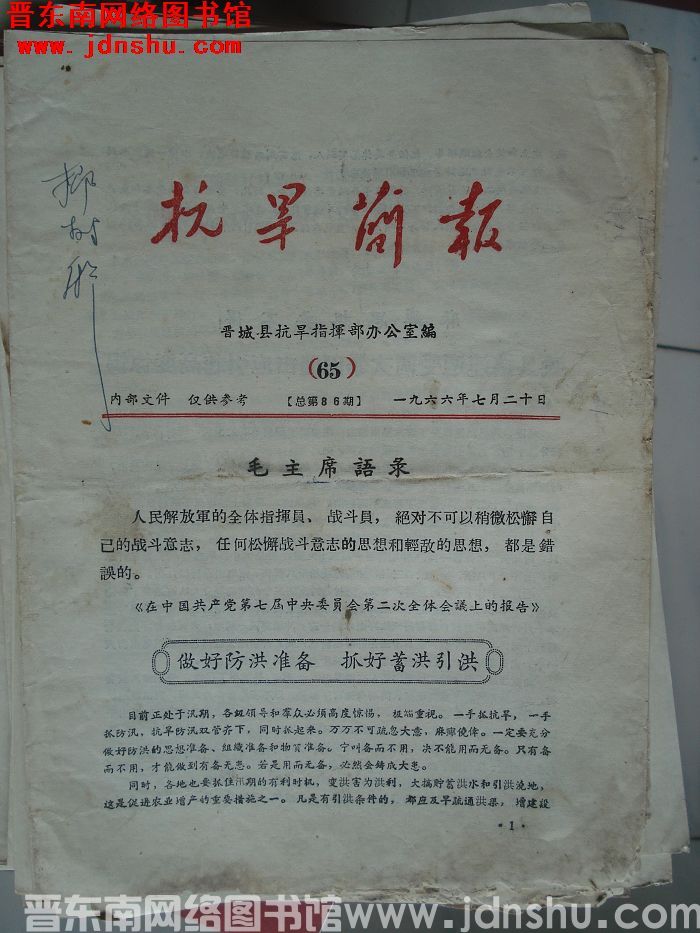 晋东南网络图书馆
www.jdnshu.com
柳树所
抗旱簡報
晋城县抗旱指揮部办公室編
(65)
内部文件 仅供参考 【总第86期】 一九六六年七月二十日
毛主席語录
人民解放軍的全体指揮員、战斗員，絕对不可以稍微松懈自
己的战斗意志，任何松懈战斗意志的思想和輕敌的思想，都是錯
誤的。
《在中国共产党第七届中央委員会第二次全体会議上的报告》
做好防洪准备 抓好蓄洪引洪
目前正处于汛期，各級領导和羣众必須高度惊惕，极端重視。一手抓抗旱，一手
抓防汛，抗旱防汛双管齐下，同时抓起来。万万不可疏忽大意，麻痹僥倖。一定要充分
做好防洪的思想准备、組織准备和物資准备。宁叫备而不用，决不能用而无备。只有备
而不用，才能做到有备无患。若是用而无备，必然会鋳成大患。
同时，各地也要抓住汛期的有利时机，变洪害为洪利，大搞貯蓄洪水和引洪浇地，
这是促进农业增产的重要措施之一。凡是有引洪条件的，都应及早疏通洪渠，增建設
·1·
晋东南网络图书馆 www.jdnshu.com